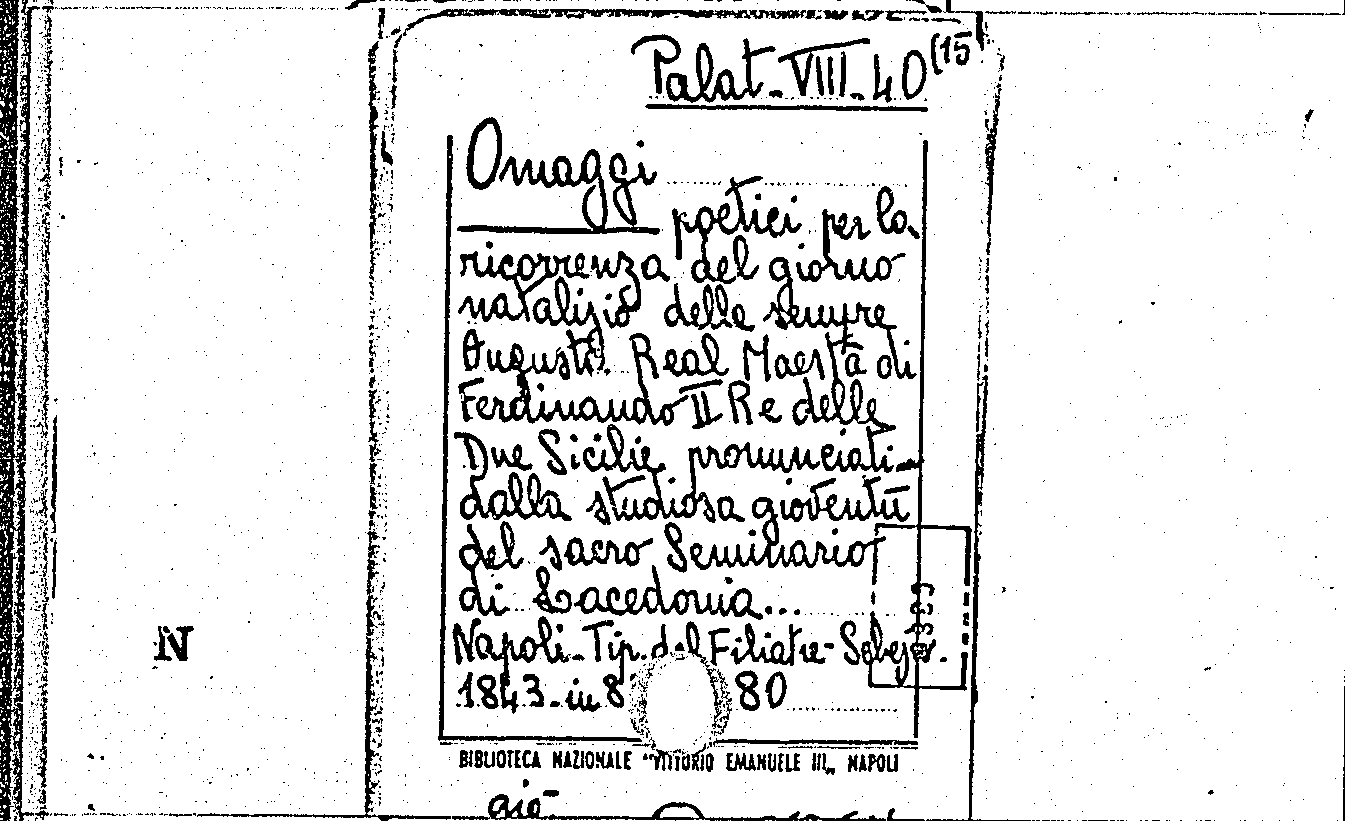 Palat-VIII-40(15
Omaggi
poetici per la
ricorrenza del giorno
natalizio della sempre
Augusta Real Maestà di
Ferdinando II Re delle
Due Sicilie pronunciati
dalla studiosa gioventù
del sacro Seminario
di Lacedonia...
Napoli-Tip. del Filiatre-Sebezio.
1843-in 8° 80
BIBLIOTECA NAZIONALE "VITTORIO EMANUELE III„ NAPOLI
N